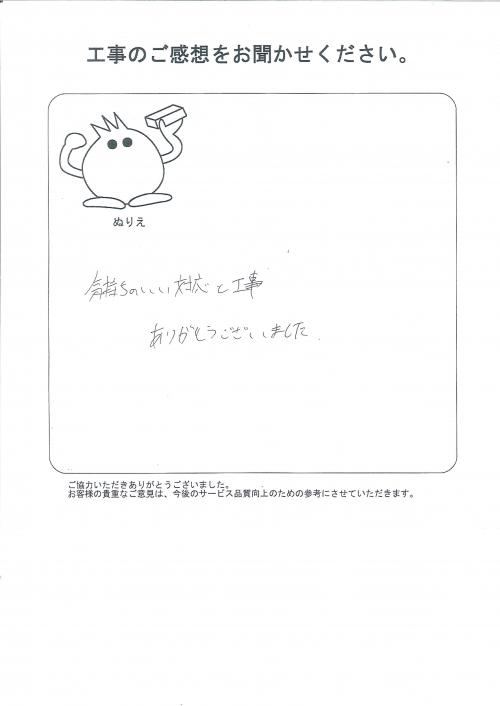 工事のご感想をお聞かせください。
ぬりえ
気持ちのいい対応と工事
ありがとうございました.
ご協力いただきありがとうございました。
お客様の貴重なご意見は、今後のサービス品質向上のための参考にさせていただきます。